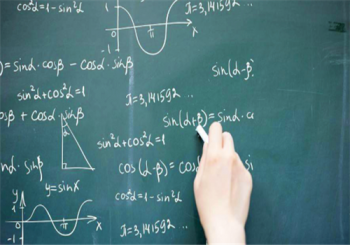 cos²α=1-sin²α
1
π
-1
π=3,141592 ..
)=sinα·cosβ-cosα·sinβ
sin(α-β)
sin²α+cos²α=1
π=3,141592 ..
osβ+cosα·sinβ
sin(α+β)=sinα·c
sin²α+cos²α=1
nα·sinβ
cos(α-β)=cosα
si
y=sinx
cos²α=1-sin²α
y
1
π
x
-1
π=3,141592 ..